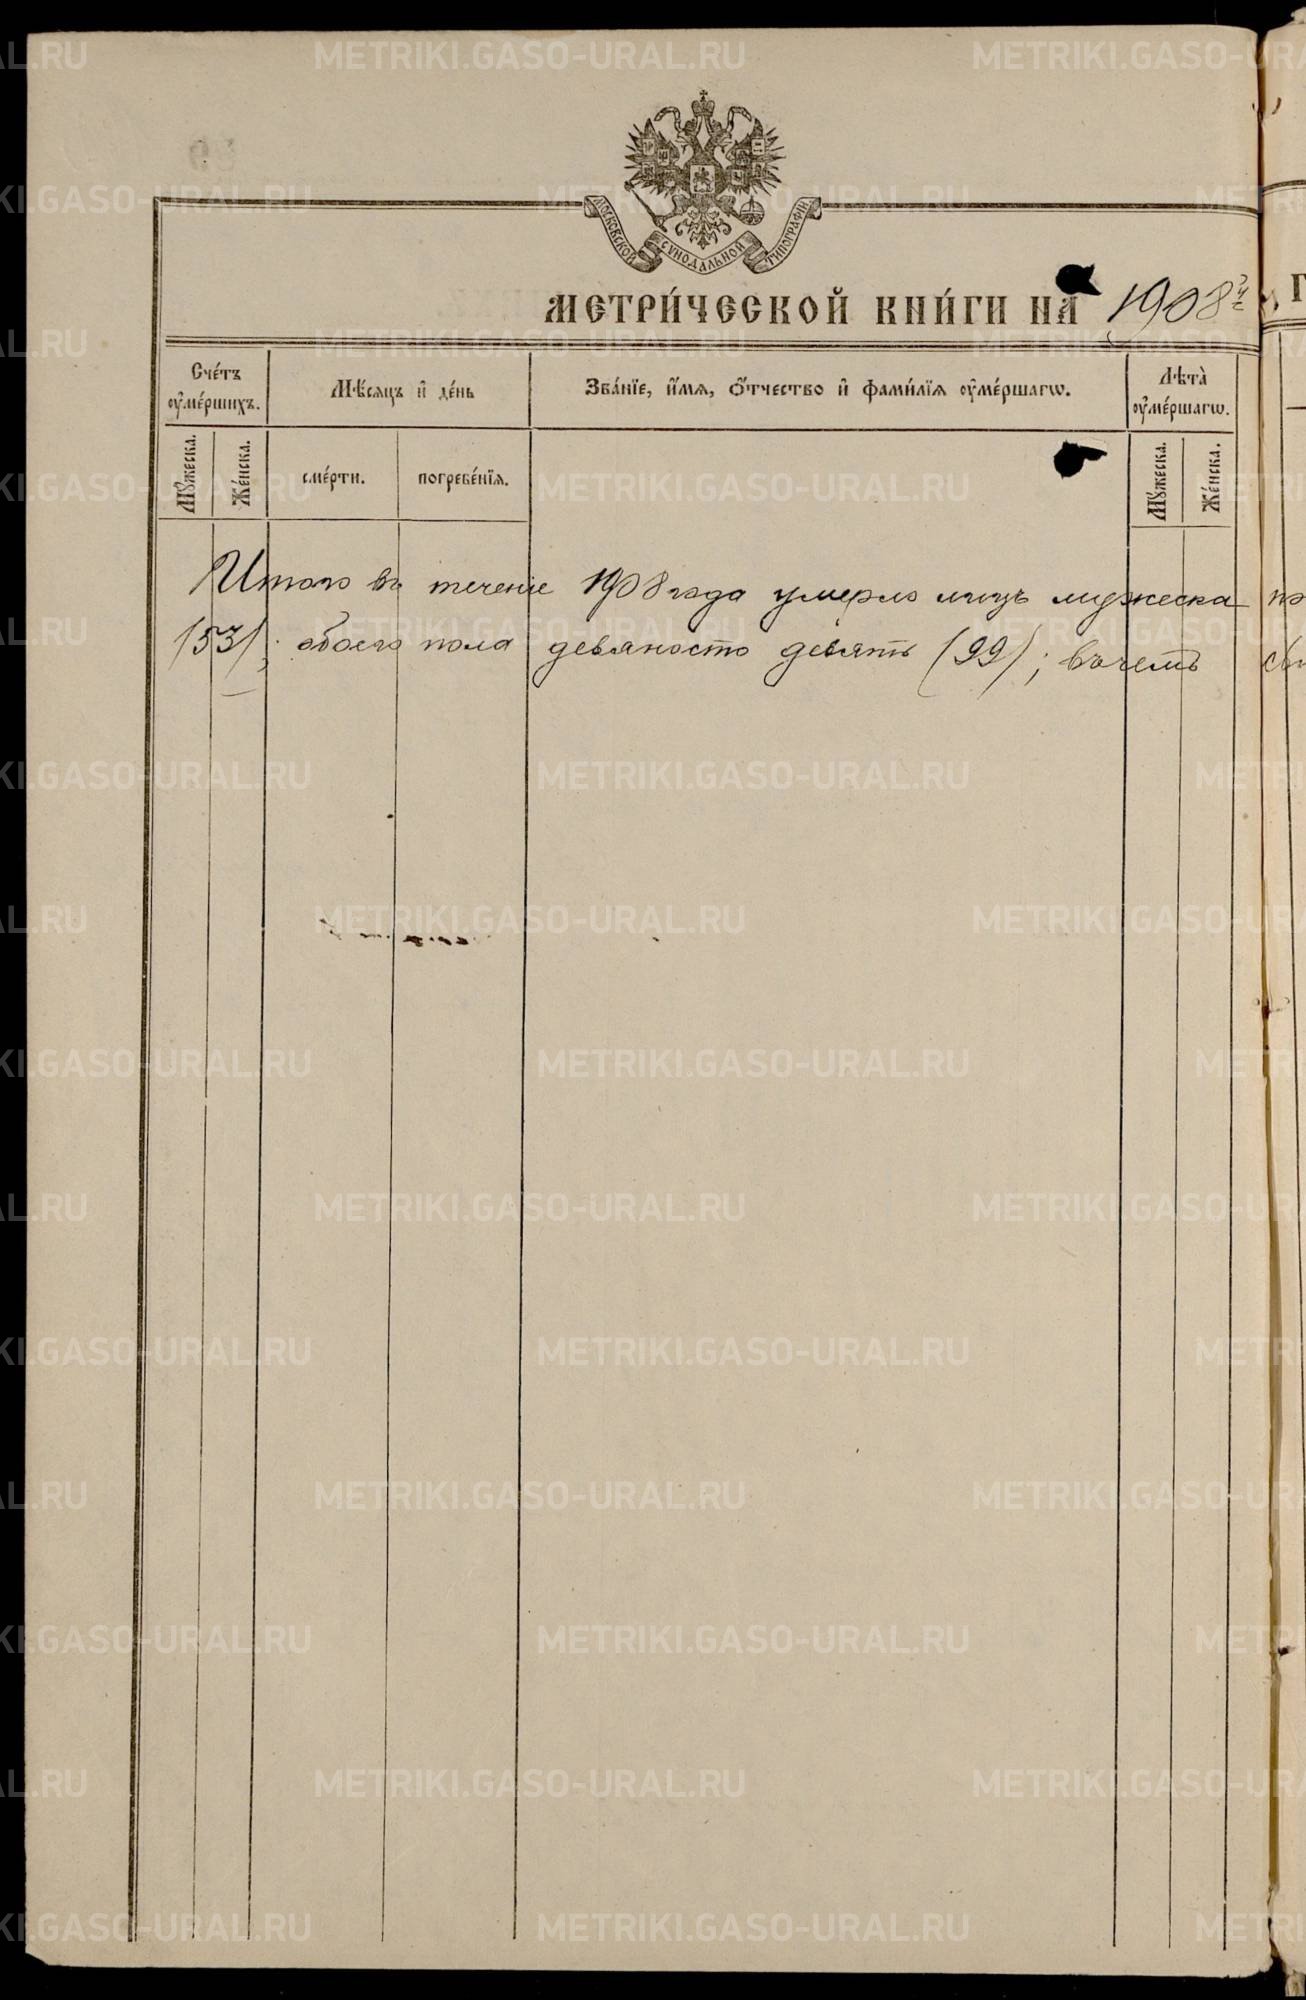 МОСКОВСКОЙ СѴНОДАЛЬНОЙ ТИПОГРАФІИ
МЕТРИ́ЧЕСКОЙ КНИ́ГИ НА̀ 1908й
Сче́тъ ᲂу҆ме́ршихъ.
Мѣ́сяцъ и҆ де́нь
Зва́нїе, и҆́мѧ, ѻ҆́тчество и҆ фами́лїѧ ᲂу҆ме́ршагѡ.
Лѣта̀ ᲂу҆ме́ршагѡ.
Мꙋ́жеска.
Же́нска.
сме́рти.
погребе́нїѧ.
Мꙋ́жеска.
Же́нска.
Итого въ теченіе 1908 года умерло лицъ мужеска по
(53); обоего пола девяносто девять (99); въ чемъ сви
METRIKI.GASO-URAL.RU